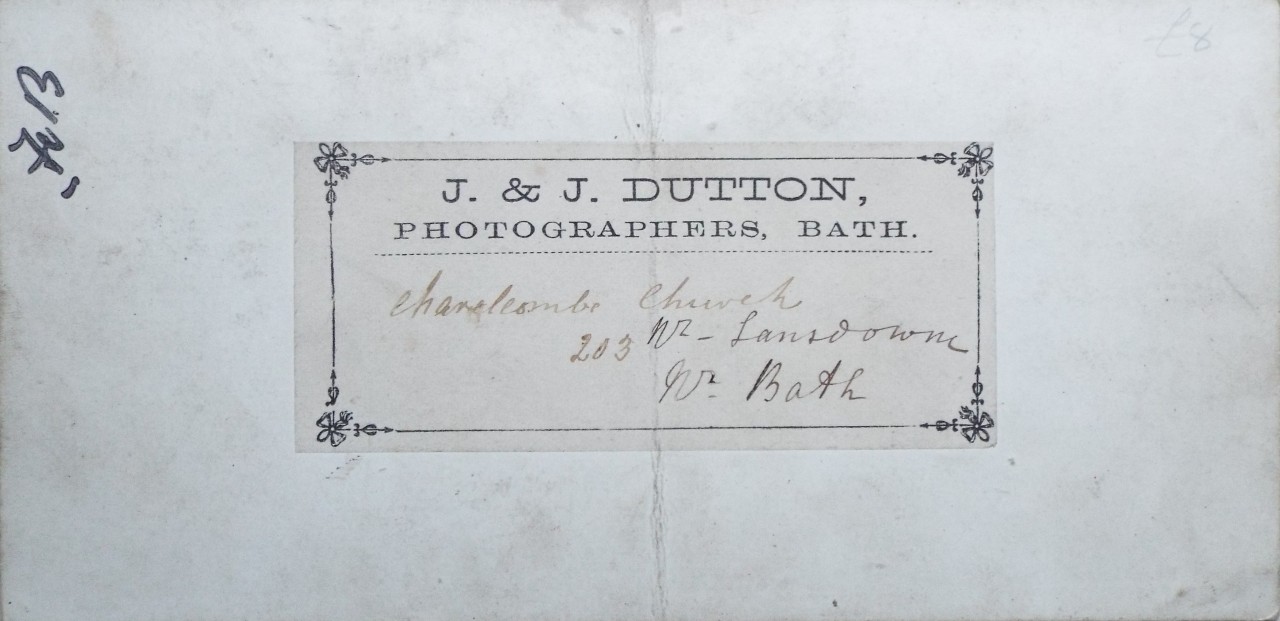 £8
J. & J. DUTTON,
PHOTOGRAPHERS, BATH.
Charlcombe Church
203 Nr - Lansdowne
Nr. Bath